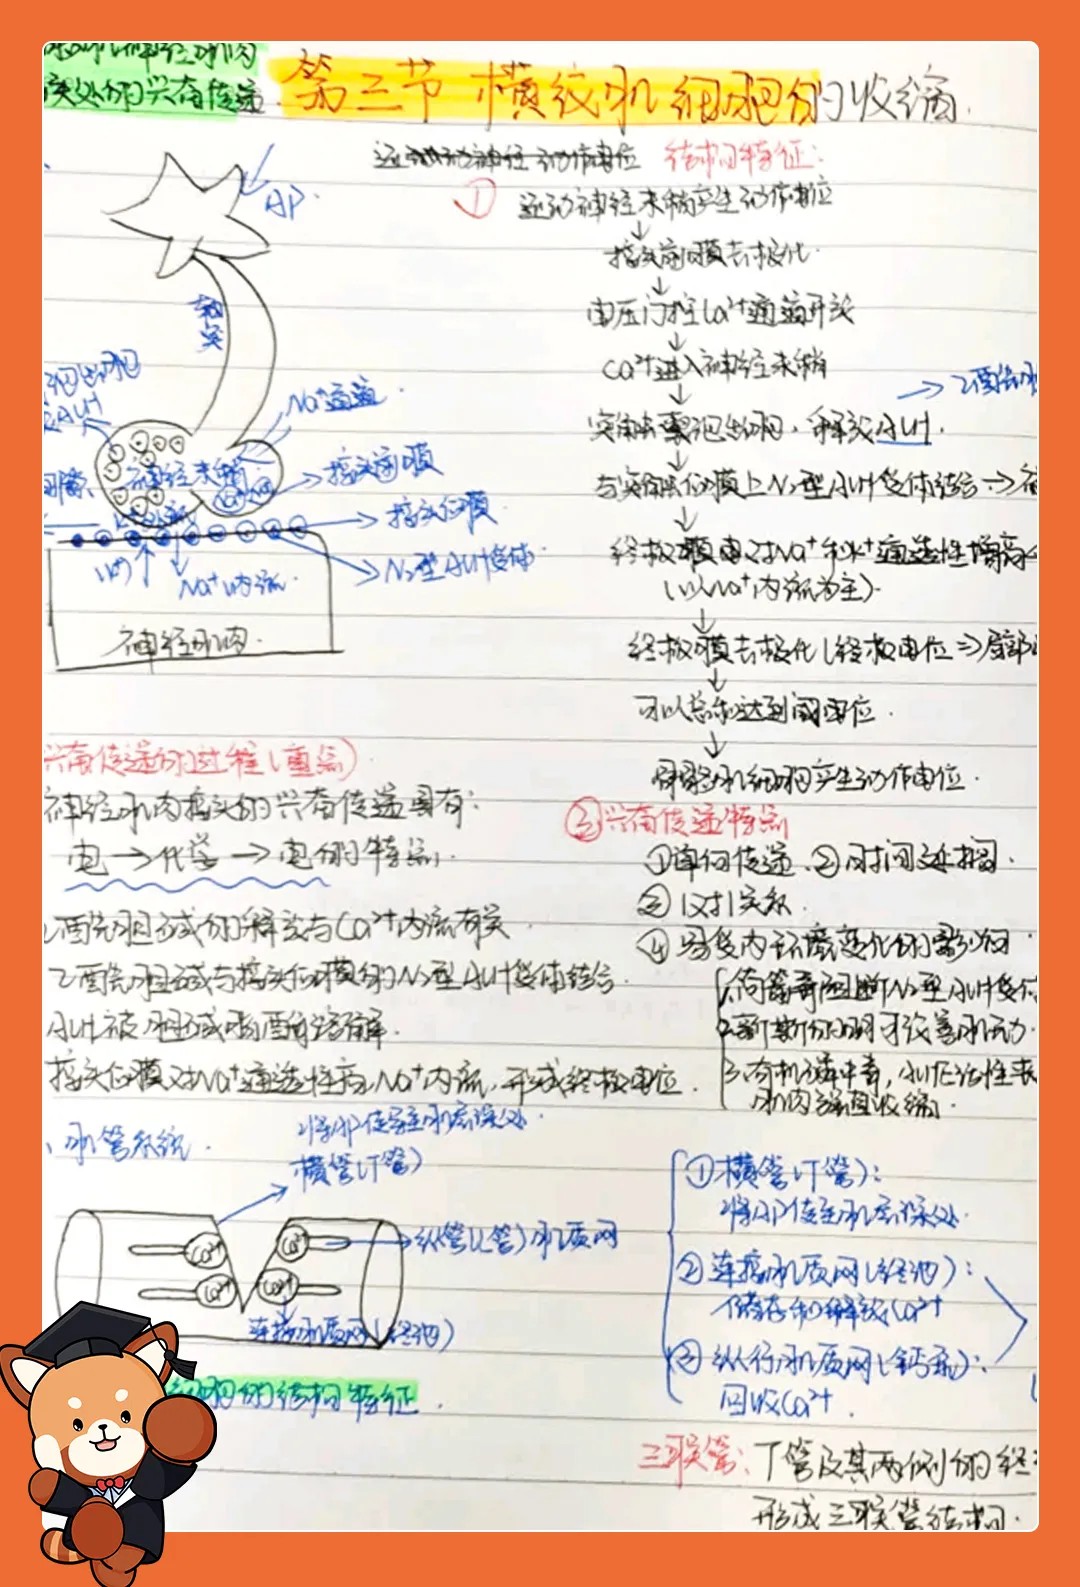 骨骼肌神经肌肉
接头处的兴奋传递
第三节 横纹肌细胞的收缩
结构特征:
AP.
① 运动神经末梢产生动作电位
↓
接头前膜去极化.
↓
轴突
电压门控Ca²⁺通道开放
↓
Ca²⁺进入神经末梢
↓
突触囊泡出胞, 释放ACH.
Na⁺通道.
↓
神经末梢
→接头前膜
→接头后膜
→N₂型ACH受体
Na⁺内流.
神经肌肉.
与突触后膜上N₂型ACH受体结合→
↓
终板膜对Na⁺和K⁺通透性增高
(以Na⁺内流为主).
↓
终板膜去极化(终板电位⇒局部
↓
可以总和达到阈电位.
↓
骨骼肌细胞产生动作电位.
兴奋传递的过程(重点)
神经肌肉接头的兴奋传递具有:
电→化学→电的特点.
乙酰胆碱的释放与Ca²⁺内流有关
乙酰胆碱与接头后膜的N₂型ACH受体结合.
ACH被胆碱酯酶溶解.
接头后膜对Na⁺通透性高, Na⁺内流, 形成终板电位.
③兴奋传递特点
①单向传递.②时间延搁.
③1对1关系.
④易受内环境变化的影响
1.筒箭毒阻断N₂型ACH受体
2.新斯的明可改善肌无力
3.有机磷中毒, ACHE活性
肌肉强直收缩.
、肌管系统.
将AP传至肌层深处.
横管(T管)
Ca²⁺
Ca²⁺
Ca²⁺
Ca²⁺
→纵管(L管)肌质网
连接肌质网(终池)
①横管(T管):
将AP传至肌层深处.
②连接肌质网(终池):
储存和释放Ca²⁺
③纵行肌质网(钙泵):
回收Ca²⁺.
细胞的结构特征.
三联管: T管及其两侧的终
形成三联管结构.